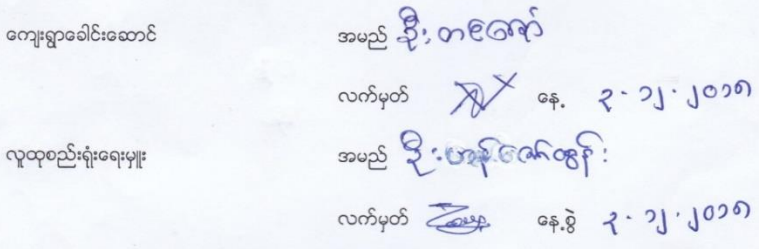 ကျေးရွာခေါင်းဆောင် အမည် ဦးတ
လက်မှတ် နေ့ ၃.၁၂.၂၀၁၈
လူထုစည်းရုံးရေးမှူး အမည် ဦးဟန်ဇော်ထွန်း
လက်မှတ် နေ့စွဲ ၃.၁၂.၂၀၁၈